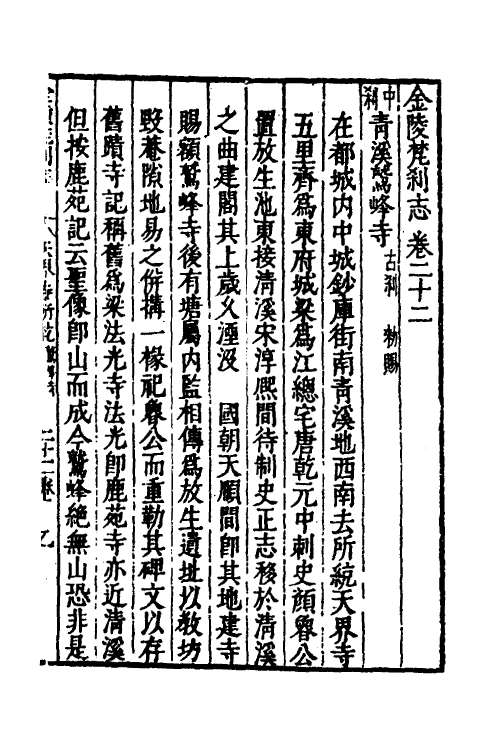 金陵梵剎志 卷二十二
中剎 青溪鷲峰寺 古剎 敕賜
在都城内中城鈔庫街南青溪地西南去所統天界寺
五里齊爲東府城梁爲江總宅唐乾元中刺史顏魯公
置放生池東接清溪宋淳熈間待制史正志移於清溪
之曲建閣其上歲乆湮没 國朝天順間卽其地建寺
賜額鷲峰寺後有塘屬内監相傳爲放生遺址以教坊
毀菴隙地易之併搆一椽祀魯公而重勒其碑文以存
舊蹟寺記稱舊爲梁法光寺法光卽鹿苑寺亦近清溪
但按鹿苑記云聖像卽山而成今鷲峰絶無山恐非是
二十二卷 乙